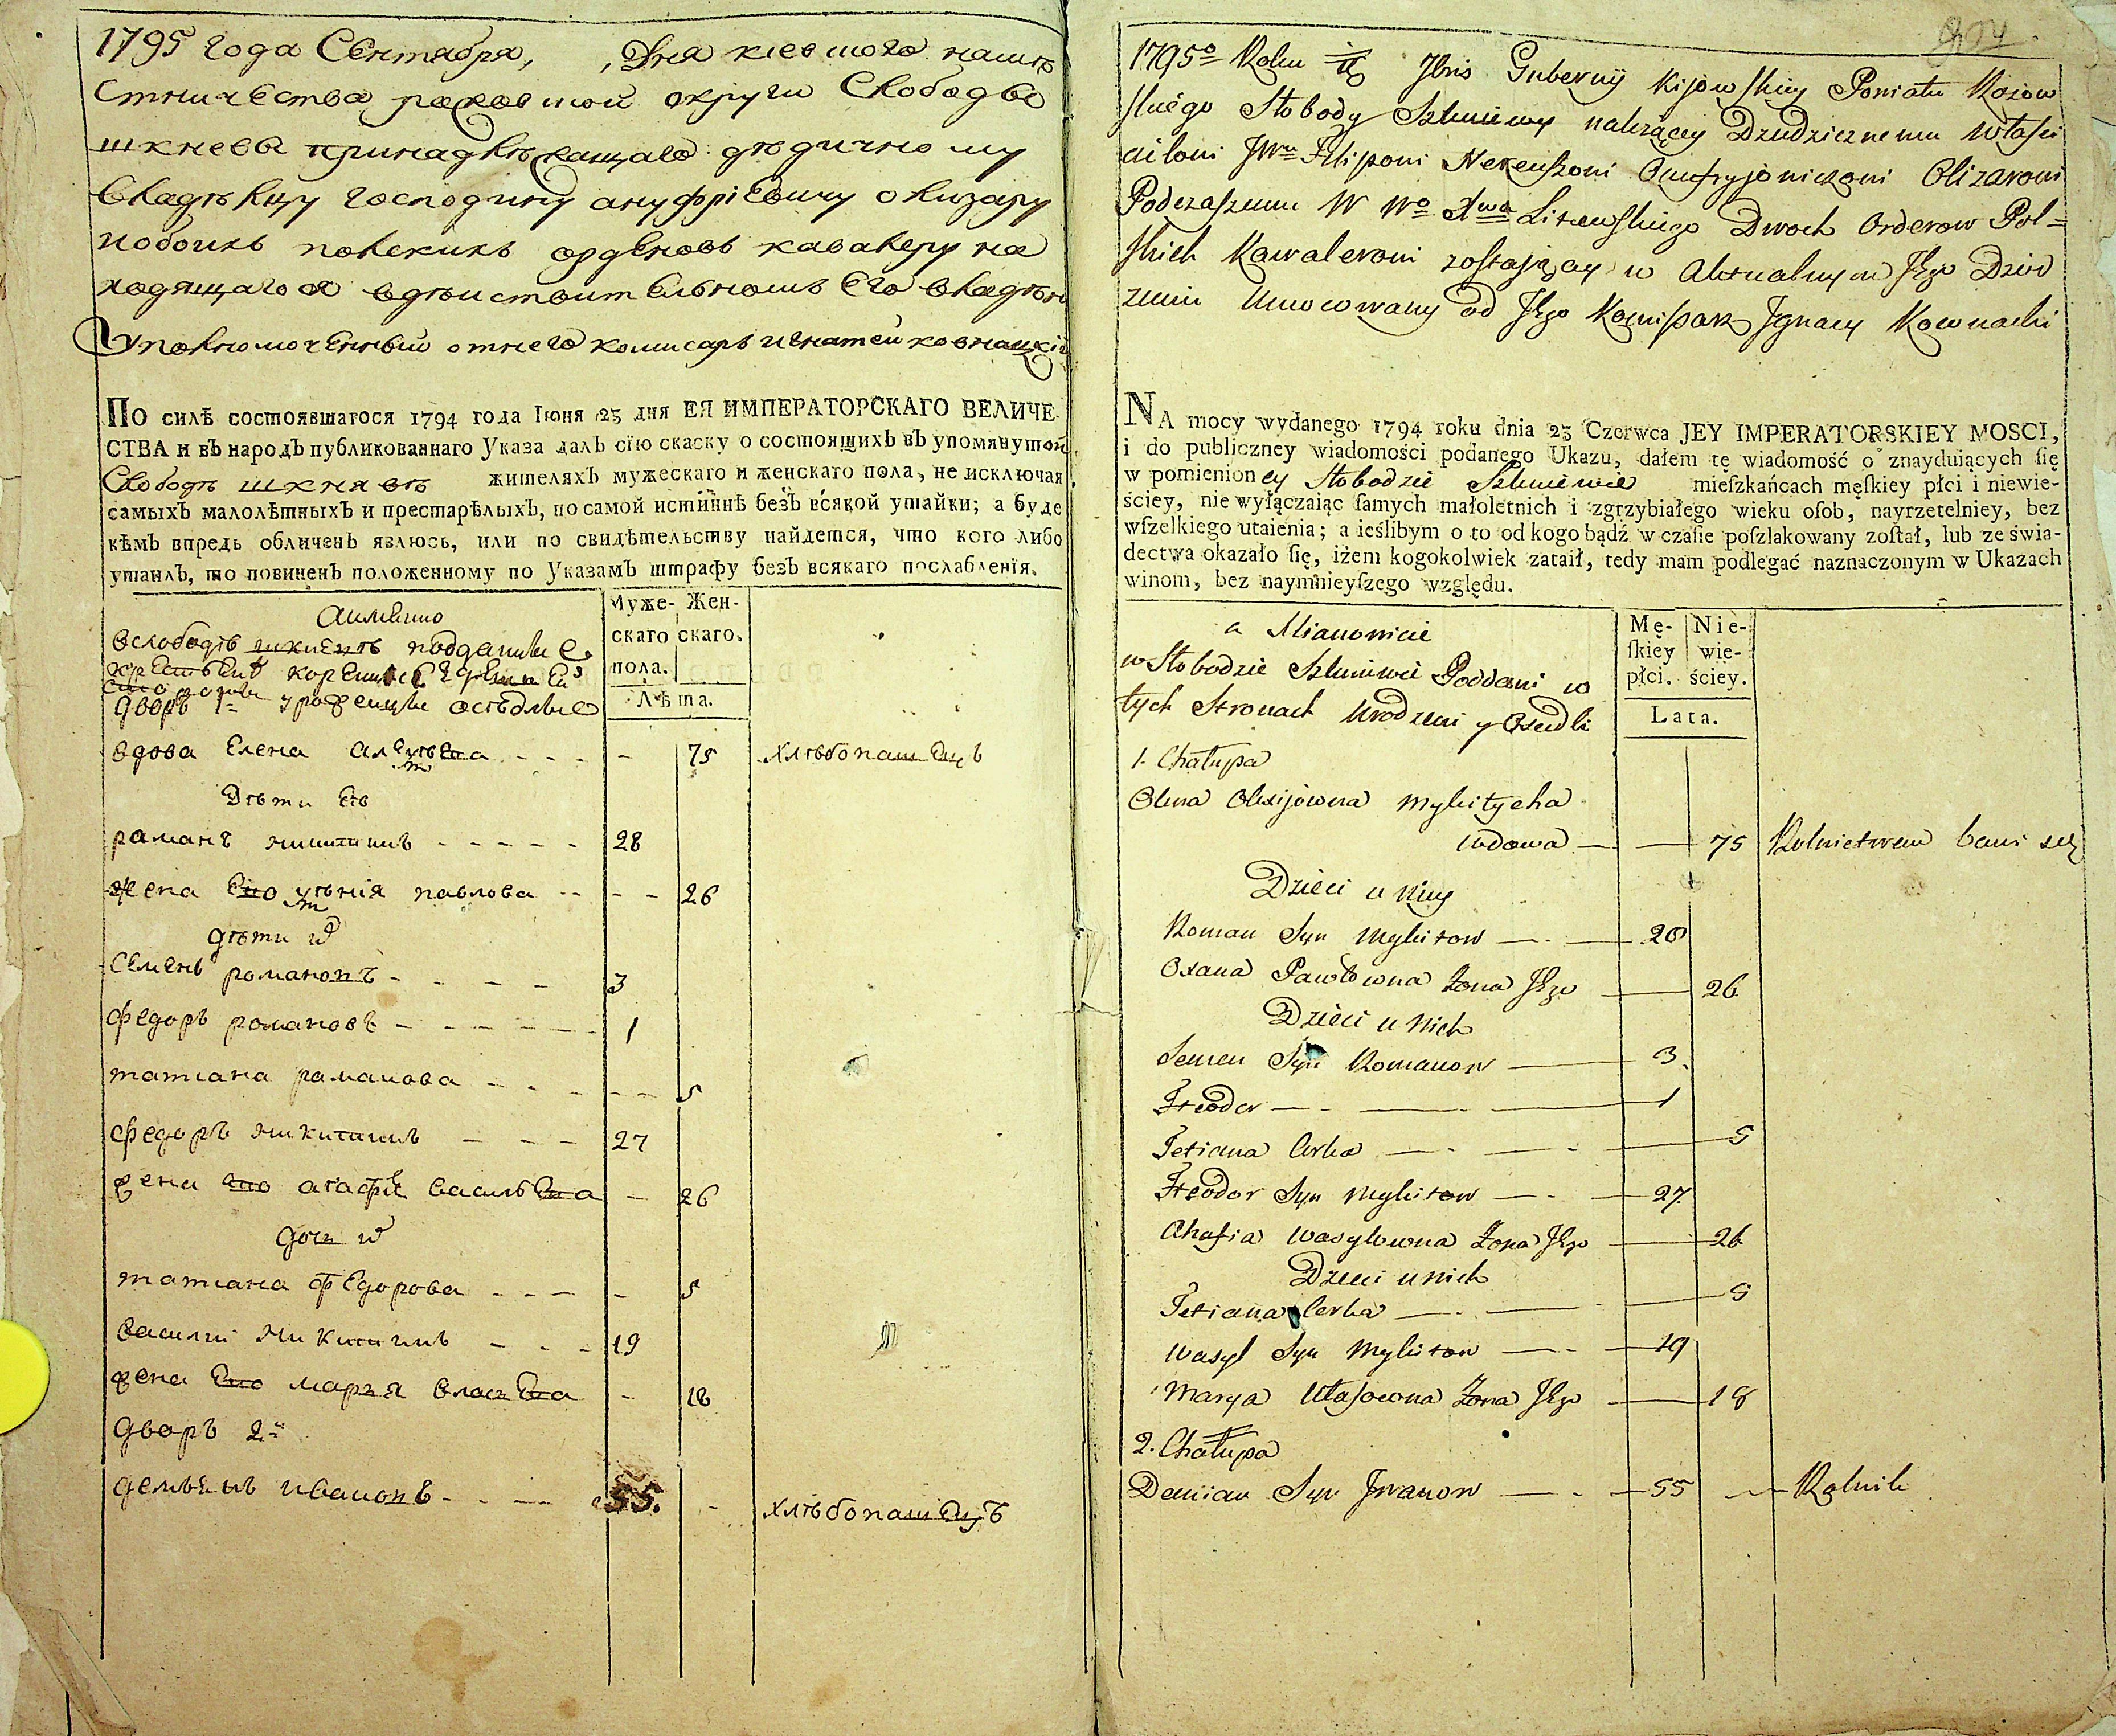 1795 года Сентября, , Дня киевского намѣ
стничества раховской округи Слободы
шкневы принадлѣжащаго дѣдичному
владѣлцу господину ануфріевичу олизару
полскихъ орденовъ кавалеру на
ходящагося вдѣиствителномъ Его владѣни
Уполномоченный отнего комисаръ игнатей ковнацкій
ПО силѣ состоявшагося 1794 года Іюня 23 дня ЕЯ ИМПЕРАТОРСКАГО ВЕЛИЧЕ
СТВА и въ народъ публикованнаго Указа далъ сїю скаску о состоящихъ въ упомянутой
Слободѣ шкнявѣ жителяхъ мужескаго и женскаго пола, не исключая
самыхъ малолѣтныхъ и престарѣлыхъ, по самой истиннѣ безъ всякой утайки; а буде
кѣмъ впредь обличенъ явлюсь, или по свидѣтельству найдется, что кого либо
утаилъ, то повиненъ положенному по Указамъ штрафу безъ всякаго послабленїя.
Аимѣнно
вслободѣ шкнѣвѣ подданные
Дворъ 1й урожденцы осѣдлые
Муже- Жен-
скаго скаго.
пола.
Лѣта.
вдова Елена алеѣева - - - - 75 хлѣбопашецъ
Дѣти Еѣ
раманъ микитинъ - - - - - 28
жена Его павлова - - - - 26
дѣти их
Семенъ романовъ - - - - 3
федоръ романовъ - - - - - 1
татиана раманова - - - - - 5
федоръ микитинъ - - - 27
жена его агафія василѣева - 26
дочь их
татиана федорова - - - - 5
василий микитинъ - - - 19
жена Его марья власѣева - 18
дворъ 2й
демьянъ ивановъ - - - - 55. - хлѣбопашецъ
24
1795o Roku 7bris Gubernij Kijowskiey Powiatu Rozow
skiego Słobody Szkniewy należącey Dziedzicznemu Właści
cielowi JWu Filipowi Nereuszowi Onufryjowiczowi Olizarowi
Podczaszemu W Wo Xwa Litewskiego Dwoch Orderow Pol=
skich Kawalerowi zostającay w Aktualnym Jego Dzier
zeniu Umocowany od Jego Komisarz Jgnacy Kownacki
NA mocy wydanego 1794 roku dnia 23 Czerwca JEY IMPERATORSKIEY MOSCI,
i do publiczney wiadomości podanego Ukazu, dałem tę wiadomość o znayduiących ſię
w pomienioney Słobodzie Szkniewie mieſzkańcach męſkiey płci i niewie-
ściey, nie wyłączaiąc ſamych małoletnich i zgrzybiałego wieku oſob, nayrzetelniey, bez
wſzelkiego utaienia; a ieślibym o to od kogo bądź w czaſie poſzlakowany zoſtał, lub ze świa-
dectwa okazało ſię, iżem kogokolwiek zataił, tedy mam podlegać naznaczonym w Ukazach
winom, bez naymnieyſzego względu.
a Mianowicie
w Słobodzie Szkniewie Poddani w
tych Stronach Urodzeni y Osiedli
Mę- Nie-
ſkiey wie-
płci. ściey.
Lata.
1. Chałupa
Olena Olexijowna Mykitycha
wdowa — — 75 Rolnictwem bawi się
Dzieci u Niey
Roman Syn Mykitow — — 28
Oxana Pawłowna Żona Jego — 26
Dzieci u Nich
Semen Syn Romanow — 3.
Fteodor — — — 1
Tetiana Corka — — 5
Fteodor Syn Mykitow — — 27
Chafia Wasylowna Żona Jego — 26
Dzieci u nich
Tetiana Corka — — 5
Wasyl Syn Mykitow — — 19
Marya Ułasowna Żona Jego — 18
2. Chałupa
Demian Syn Jwanow — — 55 — Rolnik